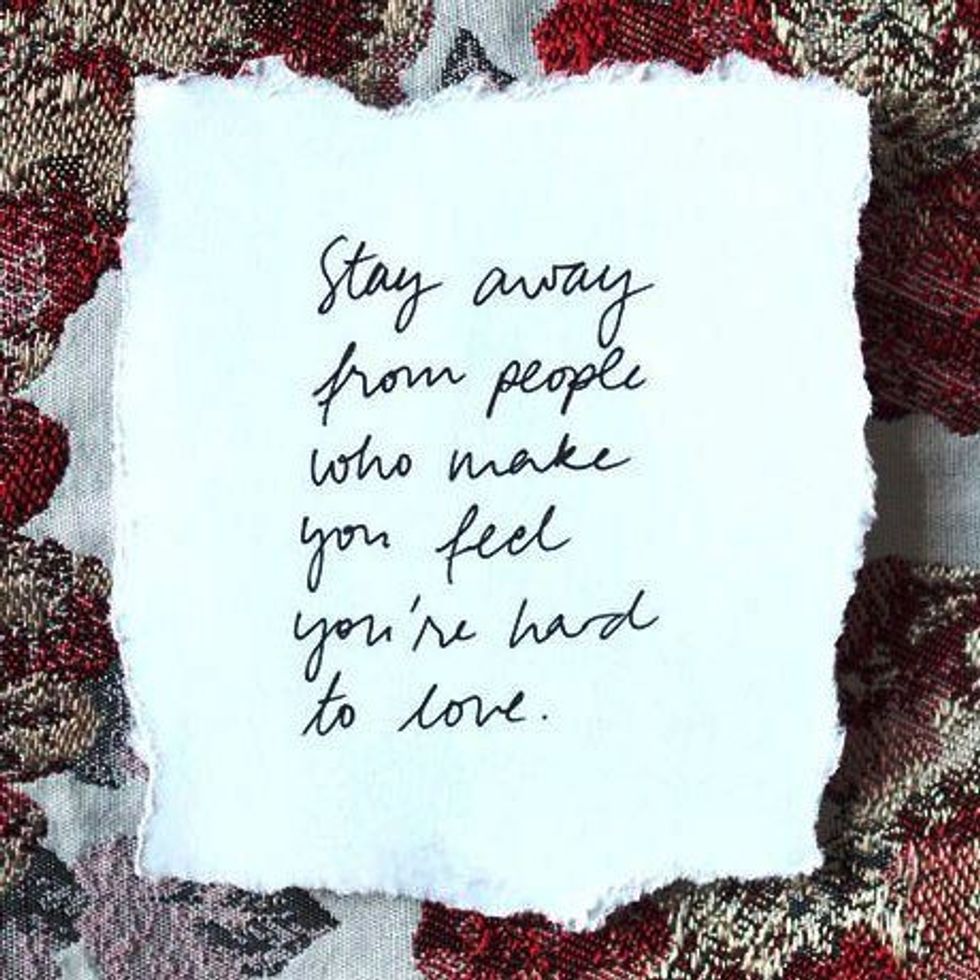 Stay away
from people
who make
you feel
you're hard
to love.